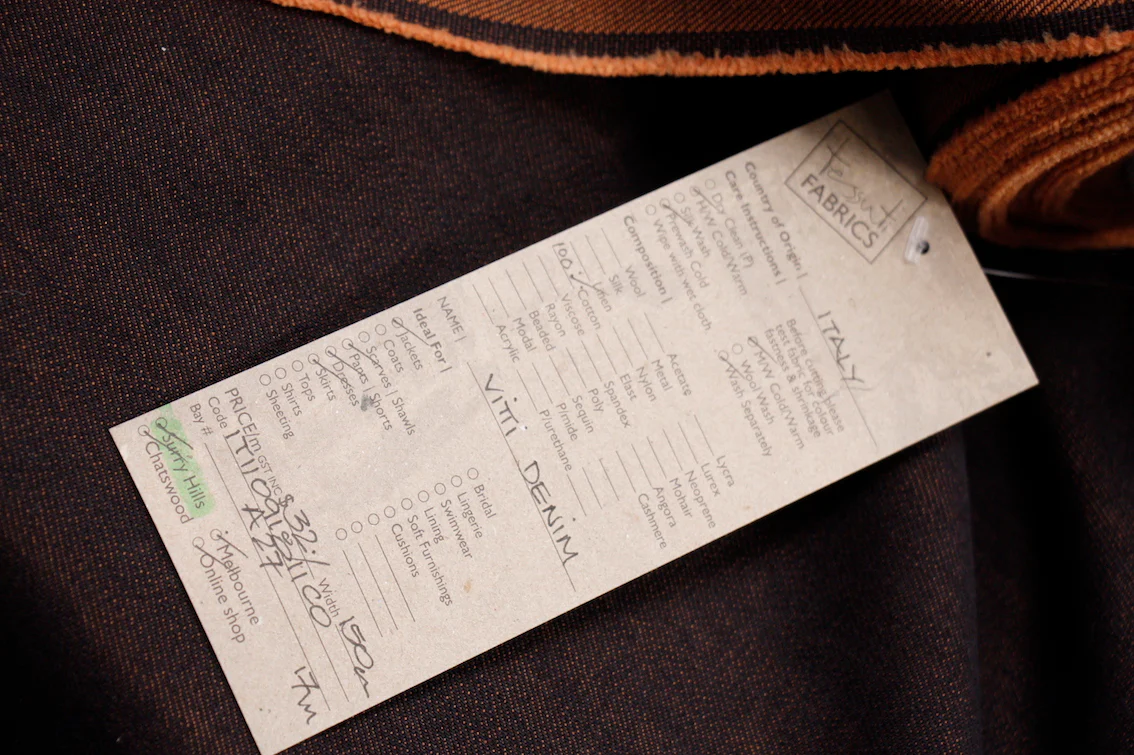 Tessuti
FABRICS
Country of Origin | ITALY
Care Instructions |
Dry Clean (P)
H/W Cold/Warm
Silk Wash
Prewash Cold
Wipe with wet cloth
Before cutting please
test fabric for colour
fastness & shrinkage
M/W Cold/Warm
Wool Wash
Wash Separately
Composition |
Wool
Silk
Linen
100% Cotton
Viscose
Rayon
Beaded
Modal
Acrylic
Acetate
Metal
Nylon
Elast
Spandex
Poly
Sequin
P/mide
P/urethane
Lycra
Lurex
Neoprene
Mohair
Angora
Cashmere
NAME | VITTI DENIM
Ideal For |
Jackets
Coats
Scarves | Shawls
Pants | Shorts
Dresses
Skirts
Tops
Shirts
Sheeting
Bridal
Lingerie
Swimwear
Lining
Soft Furnishings
Cushions
PRICE/m GST INC $32·/ Width 150cm
Code
Bay # A27 17m
Surry Hills
Melbourne
Chatswood
Online shop